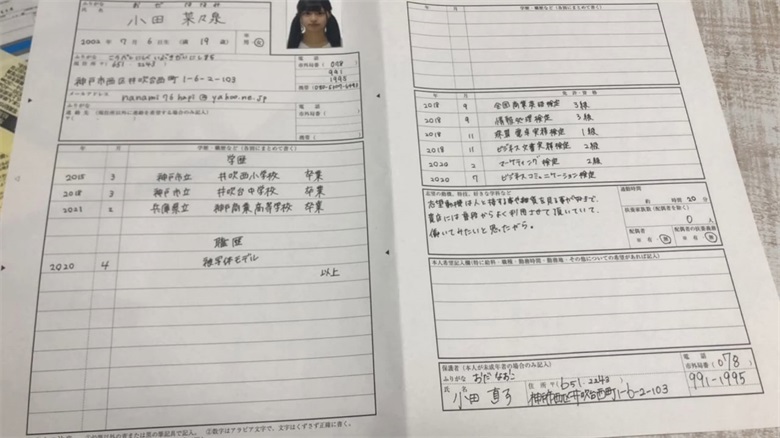 ふりがな
氏名 小田 菜々泉
2002年 7月 6日生(満 19歳) 男・女
ふりがな
現住所 〒(651-2243)
神戸市西区井吹台西町 1-6-2-103
電話
市外局番(078)
991
1995
メールアドレス
ふりがな
連絡先 (現住所以外に連絡を希望する場合のみ記入)
〒( )
電話
市外局番( )
携帯( )
年 月 学歴、職歴など(各別にまとめて書く)
学歴
2015 3 神戸市立 井吹西小学校 卒業
2018 3 神戸市立 井吹台中学校 卒業
2021 2 兵庫県立 神戸商業高等学校 卒業
職歴
2020 4 被写体モデル
以上
年 月 学歴、職歴など(各別にまとめて書く)
年 月 免許・資格
2018 9 全国商業英語検定 3級
2018 9 情報処理検定 3級
2018 11 珠算電卓実務検定 1級
2018 11 ビジネス文書実務検定 2級
2020 2 マーケティング検定 2級
2020 7 ビジネスコミュニケーション検定
志望の動機、特技、好きな学科など
志望動機は人と接する事や雑貨を見る事が好きで、
貴店には普段からよく利用させて頂いていて、
働いてみたいと思ったから。
通勤時間
約 時間 20分
扶養家族数(配偶者を除く)
0人
配偶者
有・無
配偶者の扶養義務
有・無
本人希望記入欄(特に給料・職種・勤務時間・勤務地・その他についての希望があれば記入)
保護者(本人が未成年者の場合のみ記入)
ふりがな おだ なおこ
氏名 小田 直子
住所 〒(651-2243)
神戸市西区井吹台西町1-6-2-103
電話
市外局番(078)
991-1995
②数字はアラビア文字で、文字はくずさず正確に書く。